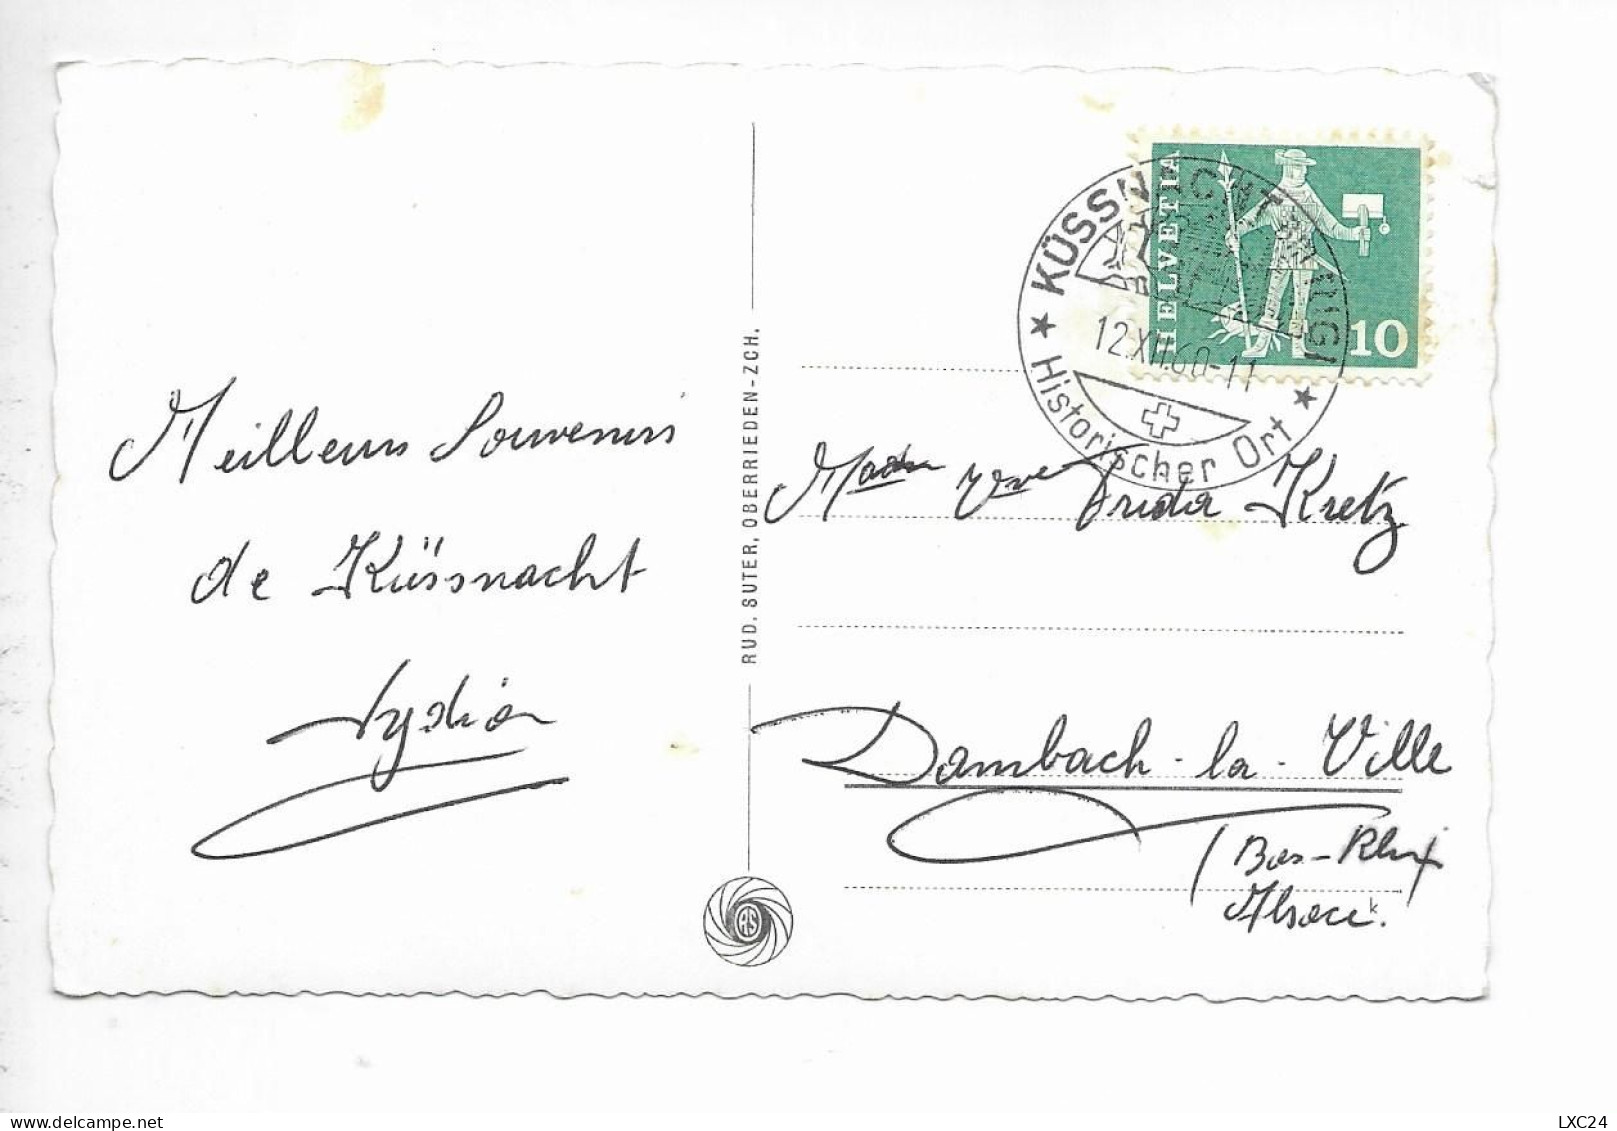 Meilleurs Souvenirs
de Küssnacht
Lydia
RUD. SUTER, OBERRIEDEN-ZCH.
RS
HELVETIA
10
KÜSSNACHT AM RIGI
12.XII.60-11
Historischer Ort
Madm Vve Frida Kretz
Dambach-la-Ville
(Bas-Rhin)
Alsace.
LXC24